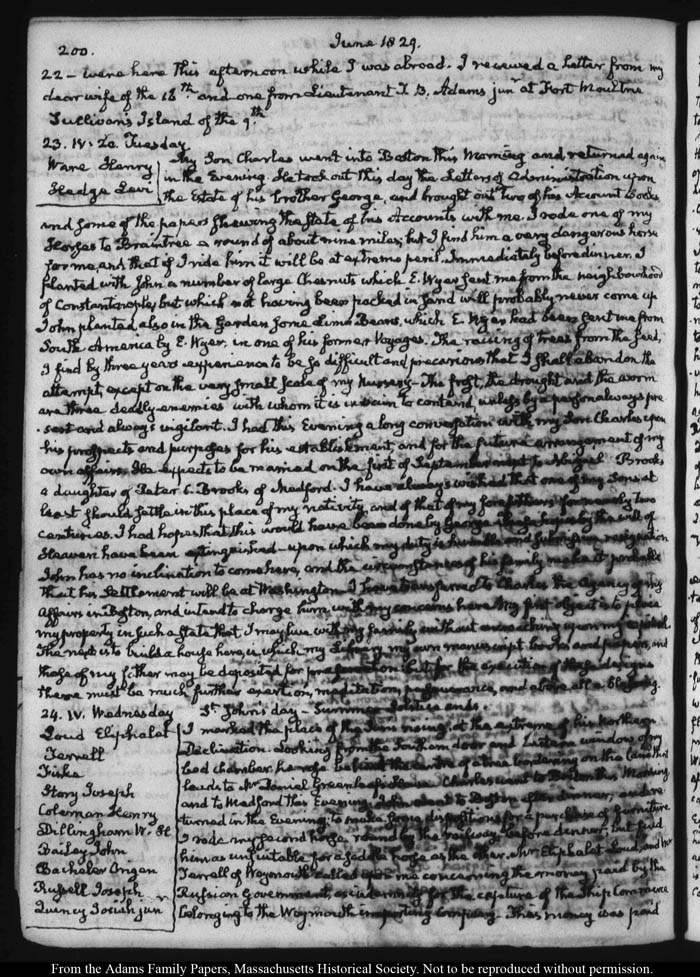 200.
June 1829.
22 - were here this afternoon while I was abroad. I received a Letter from my
dear wife of the 18th and one from Lieutenant T. B. Adams junr at Fort Moultrie
Sullivan's Island of the 9th
23. IV. 20. Tuesday
Ware Henry
Hedge Levi
My Son Charles went into Boston this Morning and returned again
in the Evening. He took out this day the Letters of Administration upon
the Estate of his brother George, and brought out two of his Account Books
and some of the papers shewing the State of his Accounts with me. I rode one of my
Horses to Braintree a round of about nine miles; but I find him a very dangerous horse
for me, and that if I ride him it will be at extreme peril. Immediately before dinner, I
planted with John a number of large Chesnuts which E. Wyer sent me from the neighbourhood
of Constantinople, but which not having been packed in sand will probably never come up
John planted also in the Garden some Lima Beans, which E. Wyer had been sent me from
South America by E. Wyer, in one of his former Voyages. The raising of trees from the seed,
I find by three years experience to be so difficult and precarious that I shall abandon the
attempt, except on the very small scale of my Nursery - The frost, the drought and the worm
are three deadly enemies with whom it is in vain to contend, unless by a person always pre
sent and always vigilant. I had this Evening a long conversation with my Son Charles upon
his prospects and purposes for his establishment, and for the future arrangement of my
own affairs. He expects to be married on the first of September next to Abigail Brooks
a daughter of Peter C. Brooks of Medford. I have always wished that one of my Sons at
least should settle in this place of my nativity, and of that of my forefathers for nearly two
centuries. I had hopes that this would have been done by George. Those hopes by the will of
Heaven have been extinguished - upon which my duty is humble and submissive resignation
John has no inclination to come here, and the circumstances of his family make it probable
that his Settlement will be at Washington. I have transferred to Charles the Agency of my
affairs in Boston, and intend to charge him with my concerns here. My first object is to place
my property in such a state that I may live with my family without encroaching upon my capital.
The next is to build a house here, in which my Library, my own manuscript books and papers, and
those of my father may be deposited for preservation but for the execution of these designs
there must be much further exertion, meditation, perseverance, and above all a blessing.
24. IV. Wednesday St. John's day - Summer Solstice ends.
Loud Eliphalet
Terrell
Fiske
Story Joseph
Coleman Henry
Dillingham W. H
Bailey John
Bachelor Origen
Russell Joseph
Quincy Josiah junr
I marked the place of the Suns rising, at the extreme of his Northern
Declination. Looking from the Southern door and Eastern window of my
bed chamber, he rose behind the centre of a tree bordering on the lane that
leads to Mr Daniel Greenleaf's House. Charles went to Boston this Morning
and to Medford this Evening. John went to Boston after dinner, and re
turned in the Evening; to make some dispositions for a purchase of furniture
I rode my second horse round by the railway before dinner; but find
him as unsuitable for a saddle horse as the other. Mr Eliphalet Loud, and Mr
Terrell of Weymouth called upon me concerning the money paid by the
Russian Government, as indemnity for the capture of the Ship Commerce
belonging to the Weymouth importing company - This money was paid
From the Adams Family Papers, Massachusetts Historical Society. Not to be reproduced without permission.